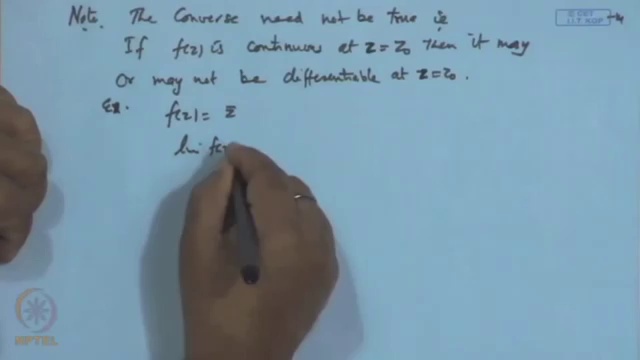 Note. The Converse need not be true ie
If f(z) is continuous at z = z₀ then it may
Or may not be differentiable at z = z₀.
Ex. f(z) = z̄
lim f(z
© CET
I.I.T. KGP
NPTEL